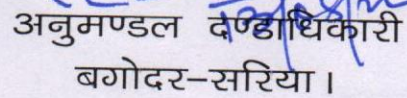 अनुमण्डल दण्डाधिकारी
बगोदर–सरिया।